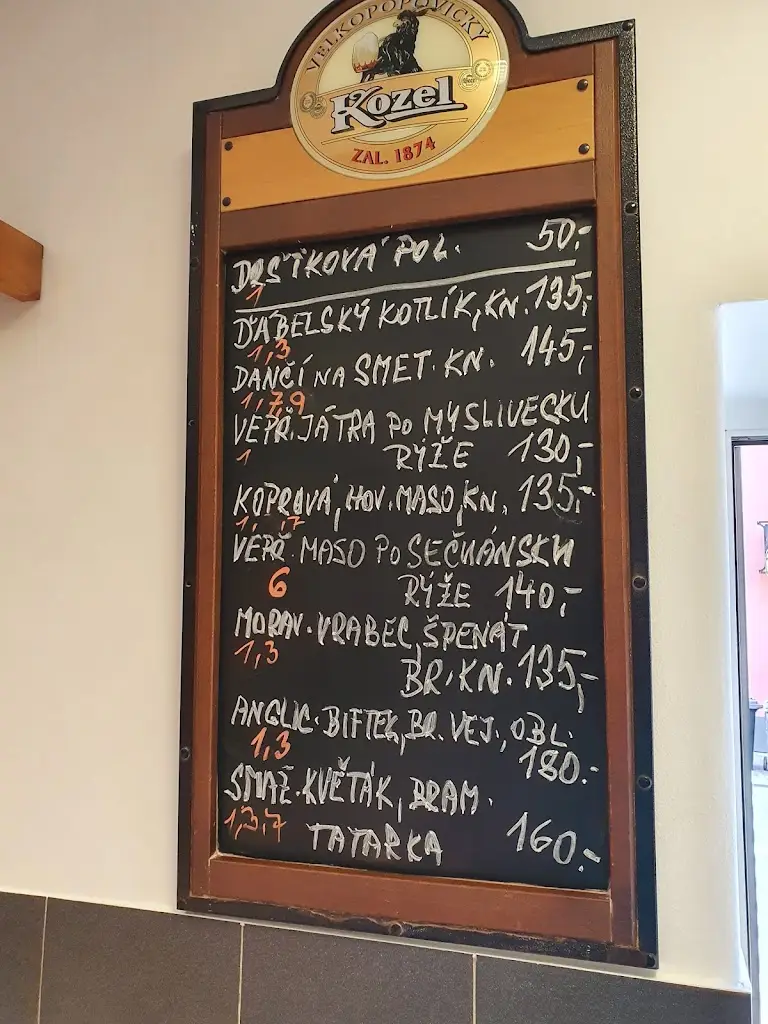 VELKOPOPOVICKÝ
Kozel
ZAL. 1874
DRŠŤKOVÁ POL. 50.-
1
ĎÁBELSKÝ KOTLÍK, KN. 135,-
1,3
DANČÍ NA SMET. KN. 145,-
1,7,9
VEPŘ. JÁTRA PO MYSLIVECKU
1 RÝŽE 130,-
KOPROVÁ, HOV. MASO, KN. 135,-
1, ,7
VEPŘ. MASO PO SEČUÁNSKU
6 RÝŽE 140,-
MORAV. VRABEC, ŠPENÁT
1,3 BR. KN. 135,-
ANGLIC. BIFTEK, BR. VEJ., OBL.
1,3 180.-
SMAŽ. KVĚTÁK, BRAM.
1,3,7 TATARKA 160,-